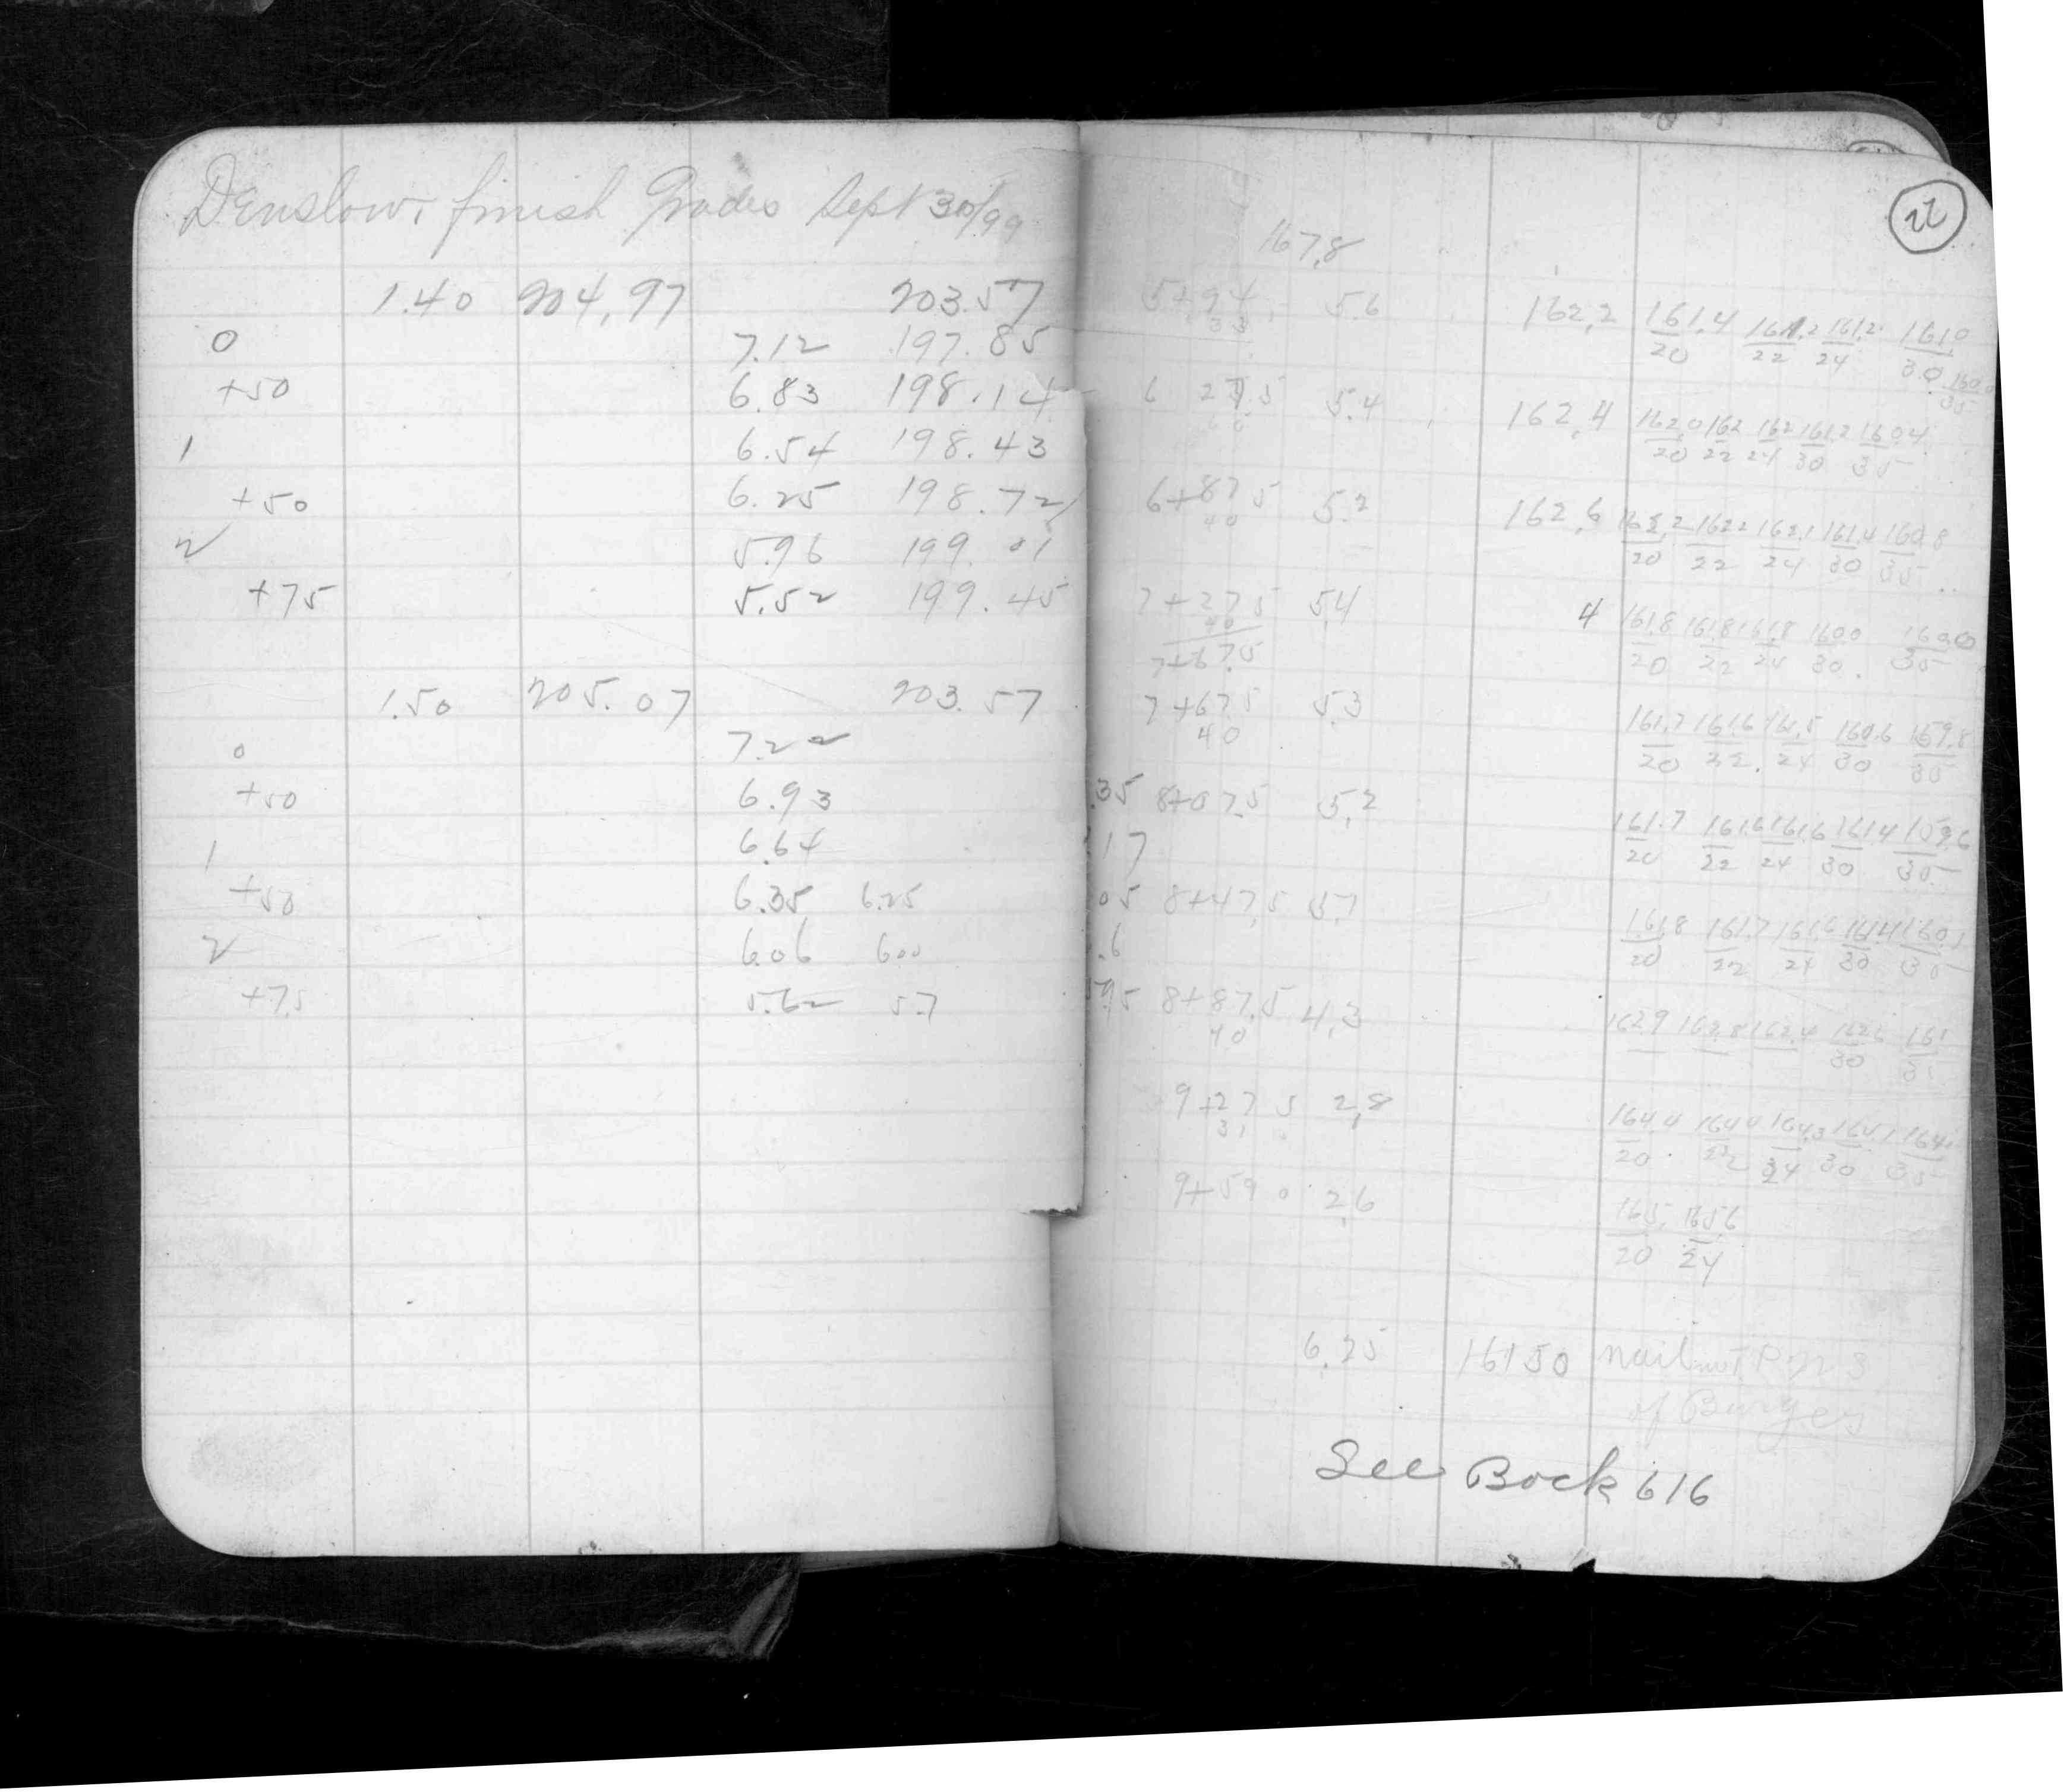 Denslow finish Grades Sept 30/99
1.40 204.97 203.57
0 7.12 197.85
+50 6.83 198.14
1 6.54 198.43
+50 6.25 198.72
2 5.96 199.01
+75 5.52 199.45
1.50 205.07 203.57
0 7.22
+50 6.93
1 6.64
+50 6.35 6.25
2 6.06 6.00
+75 5.62 5.7
22
167.8
5+94 5.6 162.2 161.4 161.2 161.2 161.0
33 20 22 24 30 35
6 27.5 5.4 162.4 162.0 162 162 161.2 160.4
20 22 24 30 35
6+87.5 5.2 162.6 162.2 162.2 162.1 161.4 160.8
40 20 22 24 30 35
7+27.5 5.4 4 161.8 161.8 161.8 160.0 160.0
40 20 22 24 30 35
7+67.5
7+67.5 5.3 161.7 161.6 161.5 160.6 159.8
40 20 22 24 30 35
.35 8+07.5 5.2 161.7 161.6 161.6 161.4 159.6
17 20 22 24 30 35
05 8+47.5 5.7 161.8 161.7 161.6 161.4 160.1
.6 20 22 24 30 35
95 8+87.5 4.3 162.9 162.8 162.4 161
40 30 35
9+27.5 2.8 164.4 164.4 164.3 164.1 164
31 20 22 24 30 35
9+59.0 2.6 165. 165.6
20 24
6.25 161.50 nail
of Burges
See Book 616